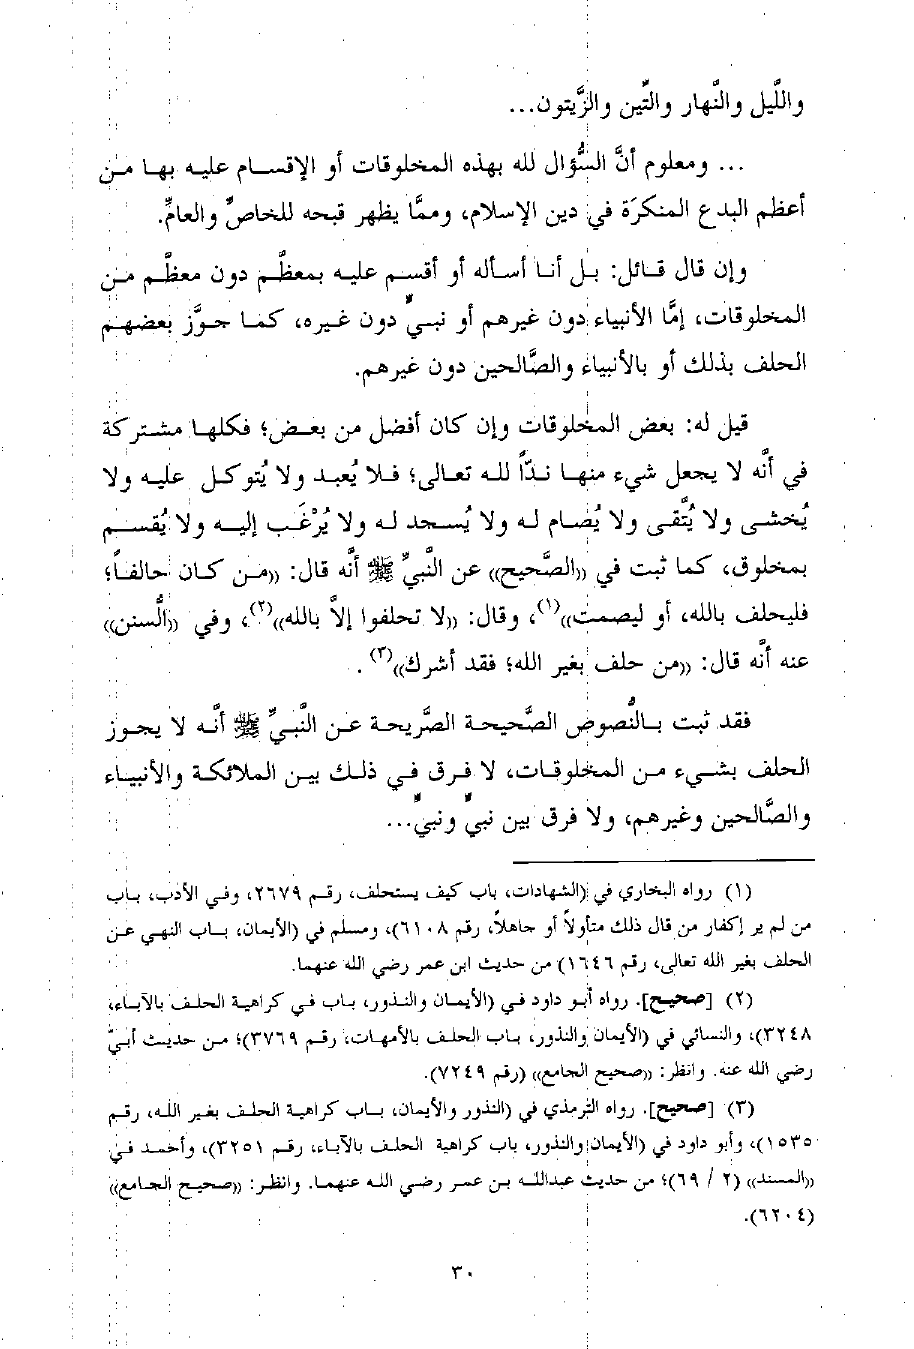 واللَّيل والنَّهار والتِّين والزَّيتون...
... ومعلوم أنَّ السُّؤال لله بهذه المخلوقات أو الإقسام عليه بها من
أعظم البدع المنكرَة في دين الإسلام، وممَّا يظهر قبحه للخاصِّ والعامِّ.
وإن قال قائل: بل أنا أسأله أو أقسم عليه بمعظَّم دون معظَّم من
المخلوقات، إمَّا الأنبياء دون غيرهم أو نبي دون غيره، كما جوَّز بعضهم
الحلف بذلك أو بالأنبياء والصَّالحين دون غيرهم.
قيل له: بعض المخلوقات وإن كان أفضل من بعض؛ فكلها مشتركة
في أنَّه لا يجعل شيء منها ندّاً لله تعالى؛ فلا يُعبد ولا يُتوكل عليه ولا
يُخشى ولا يُتَّقى ولا يُصام له ولا يُسجد له ولا يُرْغَب إليه ولا يُقسم
بمخلوق، كما ثبت في ((الصَّحيح)) عن النَّبيِّ ﷺ أنَّه قال: ((من كان حالفاً؛
فليحلف بالله، أو ليصمت))(١)، وقال: ((لا تحلفوا إلاَّ بالله))(٢)، وفي ((السُّنن))
عنه أنَّه قال: ((من حلف بغير الله؛ فقد أشرك))(٣).
فقد ثبت بالنُّصوص الصَّحيحة الصَّريحة عن النَّبيِّ ﷺ أنَّه لا يجوز
الحلف بشيء من المخلوقات، لا فرق في ذلك بين الملائكة والأنبياء
والصَّالحين وغيرهم، ولا فرق بين نبي ونبي...
(١) رواه البخاري في (الشهادات، باب كيف يستحلف، رقم ٢٦٧٩، وفي الأدب، باب
من لم ير إكفار من قال ذلك متأولاً أو جاهلاً، رقم ٦١٠٨)، ومسلم في (الأيمان، باب النهي عن
الحلف بغير الله تعالى، رقم ١٦٤٦) من حديث ابن عمر رضي الله عنهما.
(٢) [صحيح]. رواه أبو داود في (الأيمان والنذور، باب في كراهية الحلف بالآباء،
٣٢٤٨)، والنسائي في (الأيمان والنذور، باب الحلف بالأمهات، رقم ٣٧٦٩)؛ من حديث أبيّ
رضي الله عنه. وانظر: ((صحيح الجامع)) (رقم ٧٢٤٩).
(٣) [صحيح]. رواه الترمذي في (النذور والأيمان، باب كراهية الحلف بغير الله، رقم
١٥٣٥)، وأبو داود في (الأيمان والنذور، باب كراهية الحلف بالآباء، رقم ٣٢٥١)، وأحمد في
((المسند)) (٢ / ٦٩)؛ من حديث عبدالله بن عمر رضي الله عنهما. وانظر: ((صحيح الجامع))
(٦٢٠٤).
٣٠